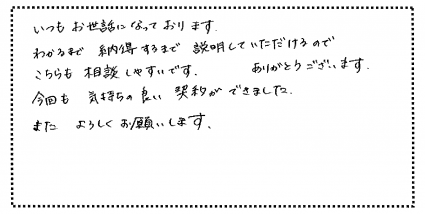 いつもお世話になっております.
わかるまで 納得するまで 説明していただけるので
こちらも 相談しやすいです. ありがとうございます.
今回も 気持ちの良い 契約ができました.
また よろしくお願いします.